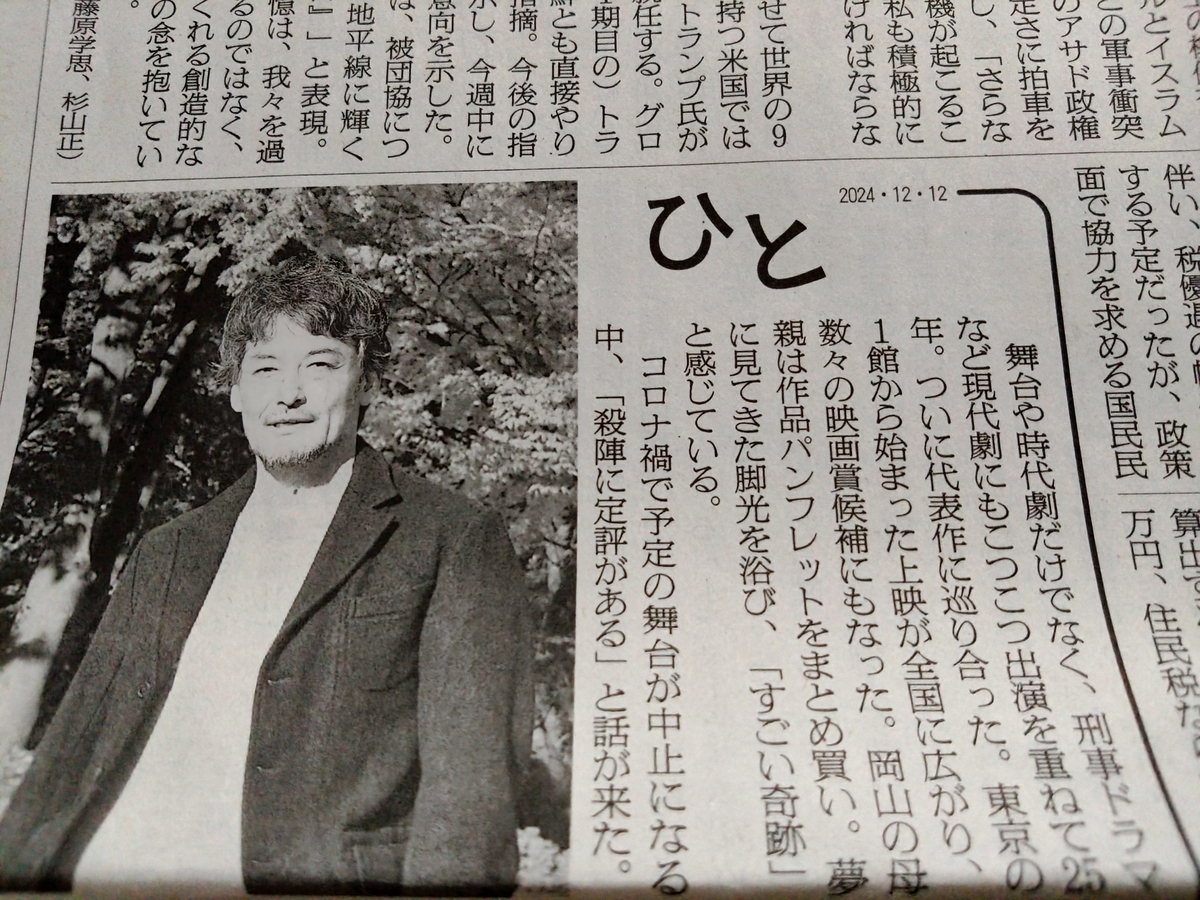 ルとイスラム
どの軍事衝突
のアサド政権
定さに拍車を
し、「さらな
機が起こるこ
私も積極的に
ければならな
せて世界の9
持つ米国では
トランプ氏が
就任する。グロ
1期目の）トラ
鮮とも直接やり
指摘。今後の指
示し、今週中に
意向を示した。
は、被団協につ
地平線に輝く
』」と表現。
憶は、我々を過
るのではなく、
くれる創造的な
の念を抱いてい
。
藤原学思、杉山正）
伴い、税優遇の
する予定だったが、政策
面で協力を求める国民民
算出
万円、住民税
2024・12・12
ひと
舞台や時代劇だけでなく、刑事ドラマ
など現代劇にもこつこつ出演を重ねて25
年。ついに代表作に巡り合った。東京の
1館から始まった上映が全国に広がり、
数々の映画賞候補にもなった。岡山の母
親は作品パンフレットをまとめ買い。夢
に見てきた脚光を浴び、「すごい奇跡」
と感じている。
コロナ禍で予定の舞台が中止になる
中、「殺陣に定評がある」と話が来た。